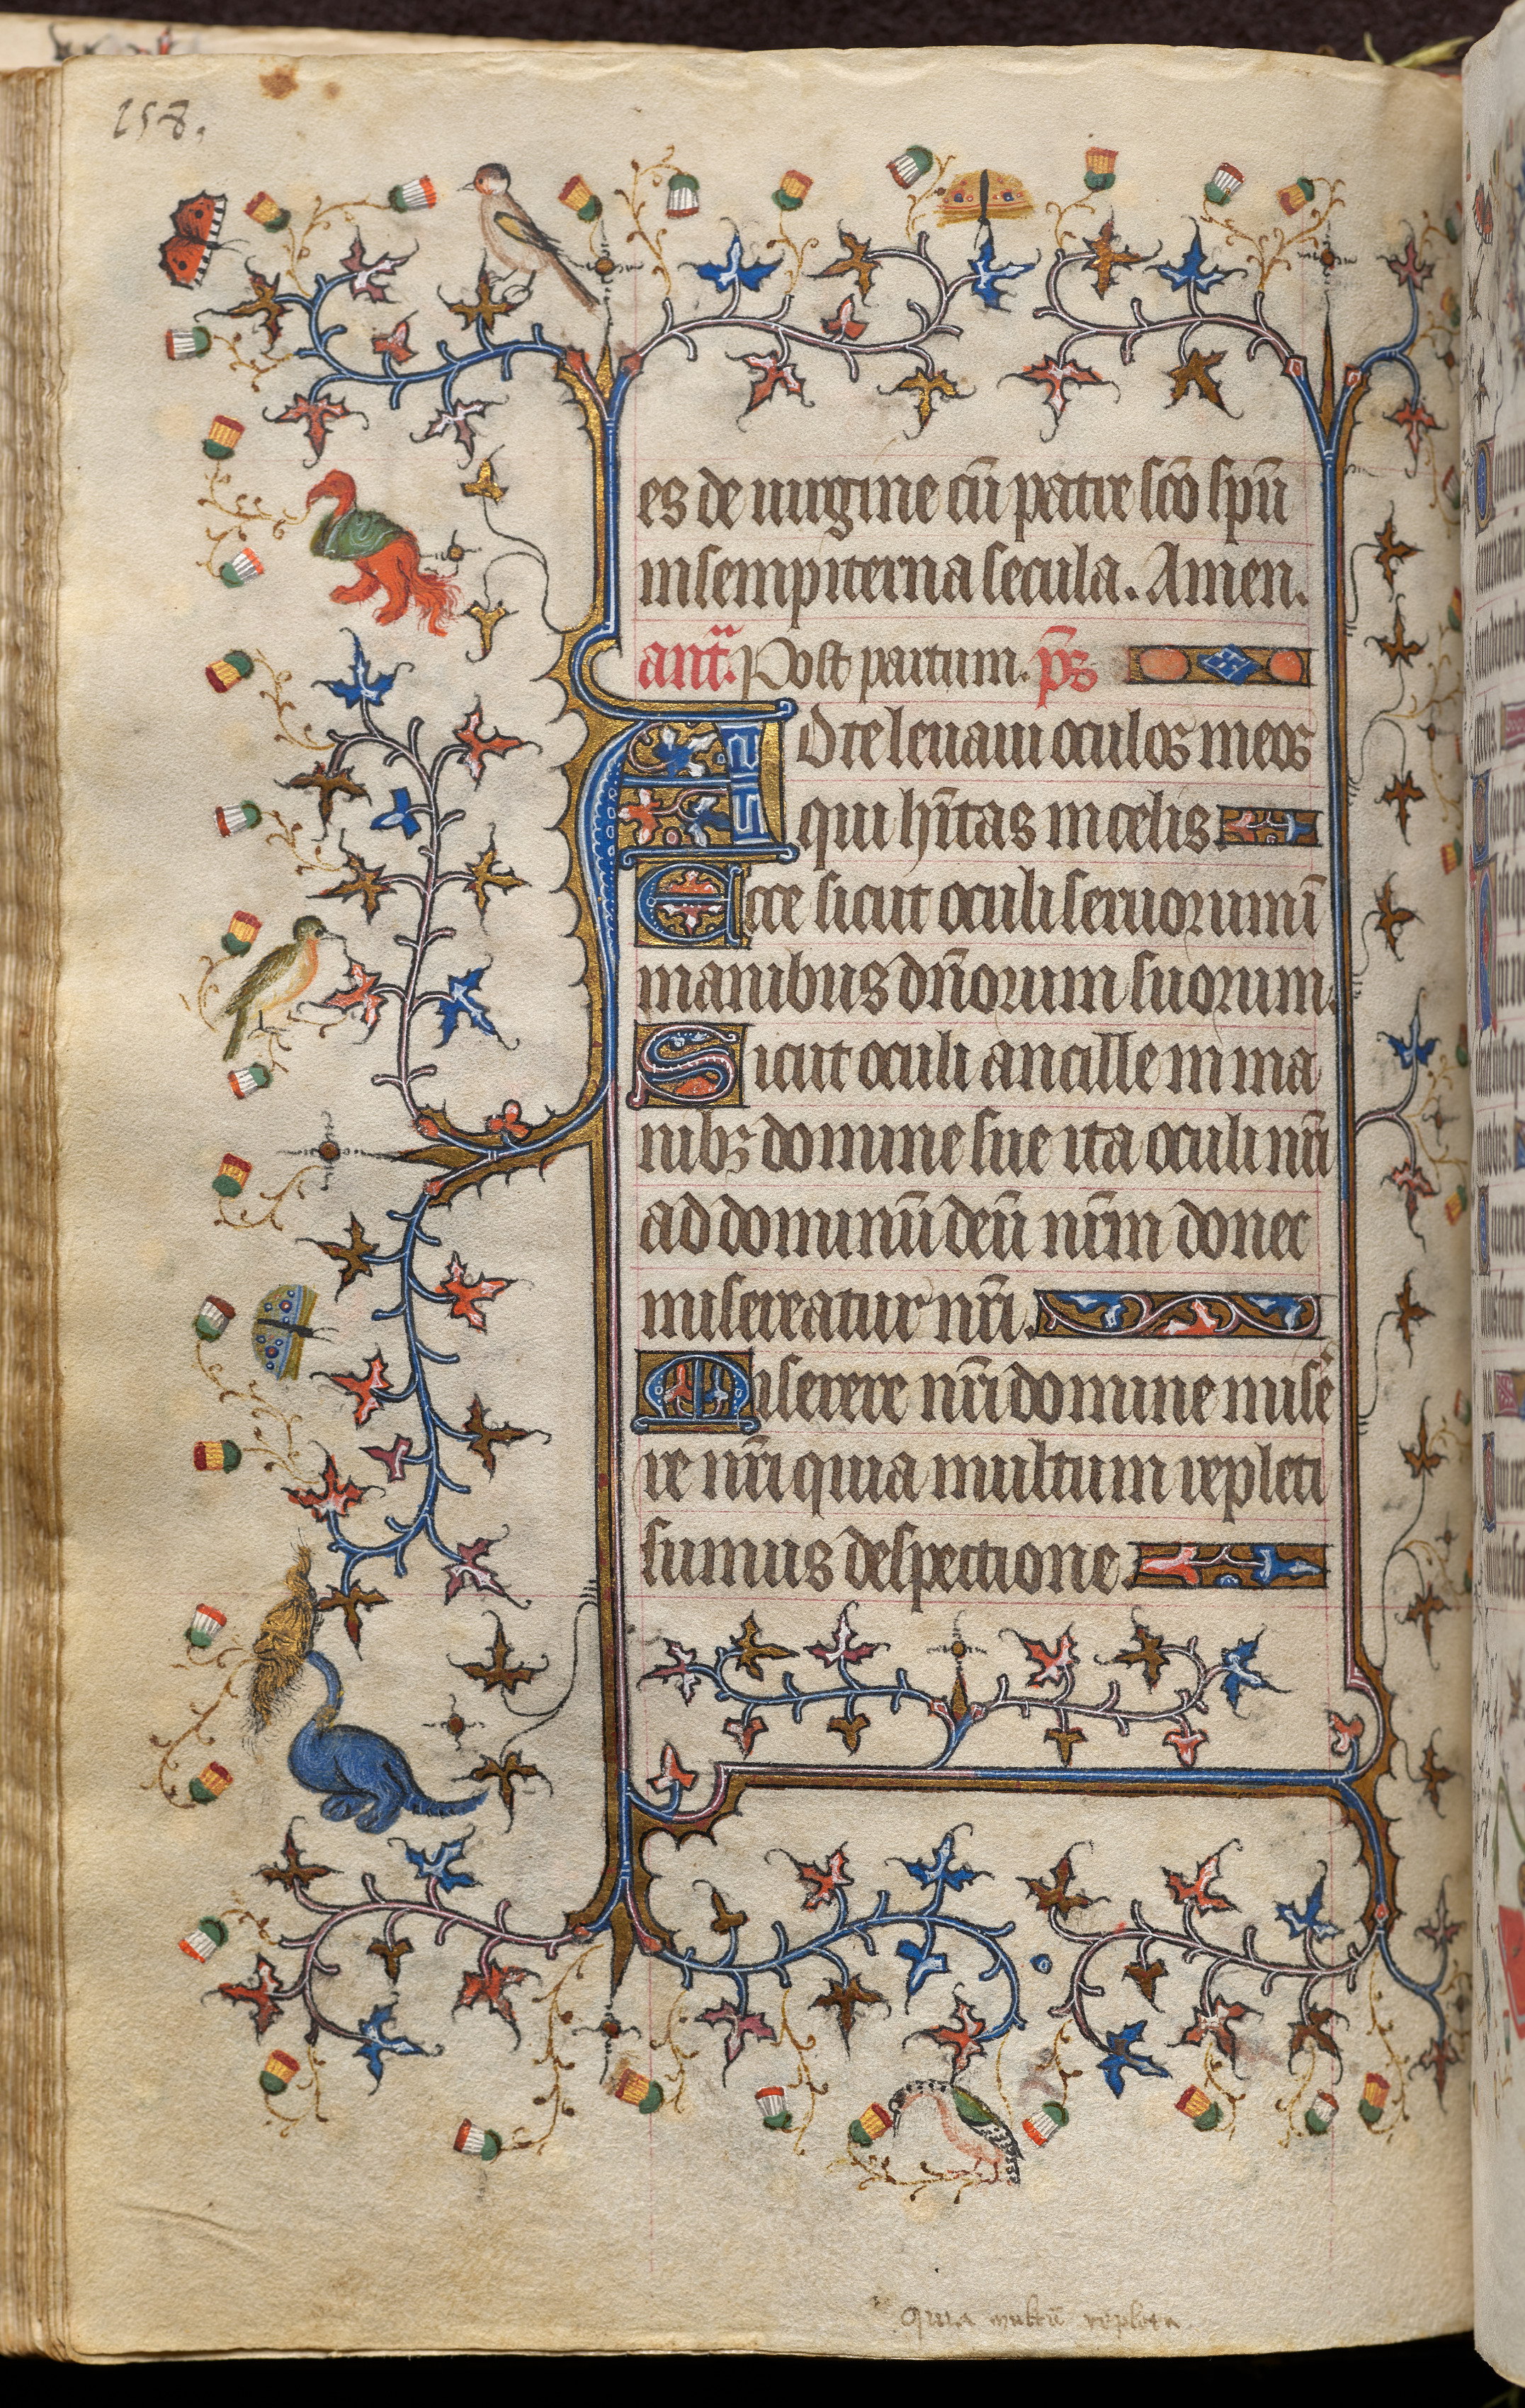 258.
es de uirgine cū patre scō spū
in sempiterna secula. Amen.
anta. Post partum. ps
Ad te leuaui oculos meos
qui hītas in celis.
Ecce sicut oculi seruorum ī
manibus dn̄orum suorum.
Sicut oculi ancille in ma
nibꝫ domine sue ita oculi nr̄i
ad dominū deū nr̄m donec
misereatur nr̄i.
Miserere nr̄i domine mise
re nr̄i quia multum repleti
sumus despectione.
quia multū repleti